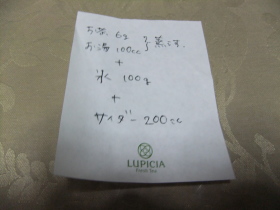 お茶 6g
お湯 100cc } 蒸らす
+
氷 100g
+
サイダー 200cc
LUPICIA
Fresh Tea